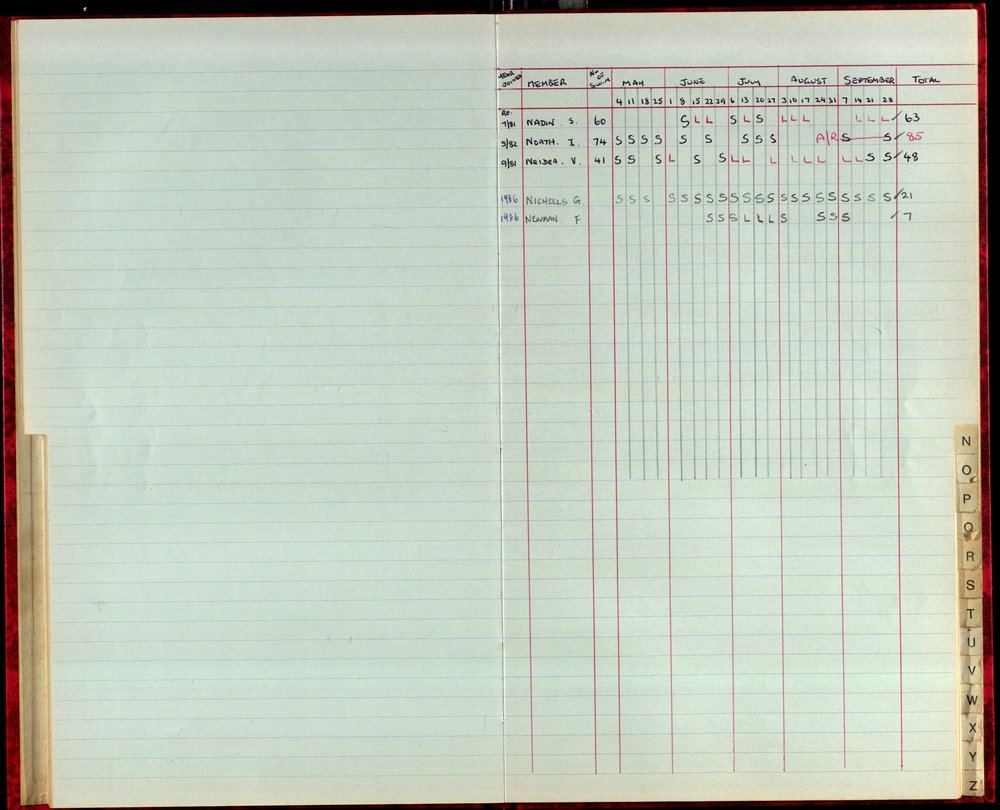 YEAR JOINED MEMBER No OF SWIM MAY JUNE JULY AUGUST SEPTEMBER TOTAL
4 11 18 25 1 8 15 22 29 6 13 20 27 3 10 17 24 31 7 14 21 28
RE. 7/81 NADIN S. 60 S L L S L S L L L L L L / 63
5/82 NORTH. I. 74 S S S S S S S S S A/R S S / 85
9/81 NEIDRA. V. 41 S S S L S S L L L L L L L L S S / 48
1986 NICHOLLS G S S S S S S S S S S S S S S S S S S S S S / 21
1986 NEWMAN F S S S L L L S S S S / 7
N
O
P
Q
R
S
T
U
V
W
X
Y
Z